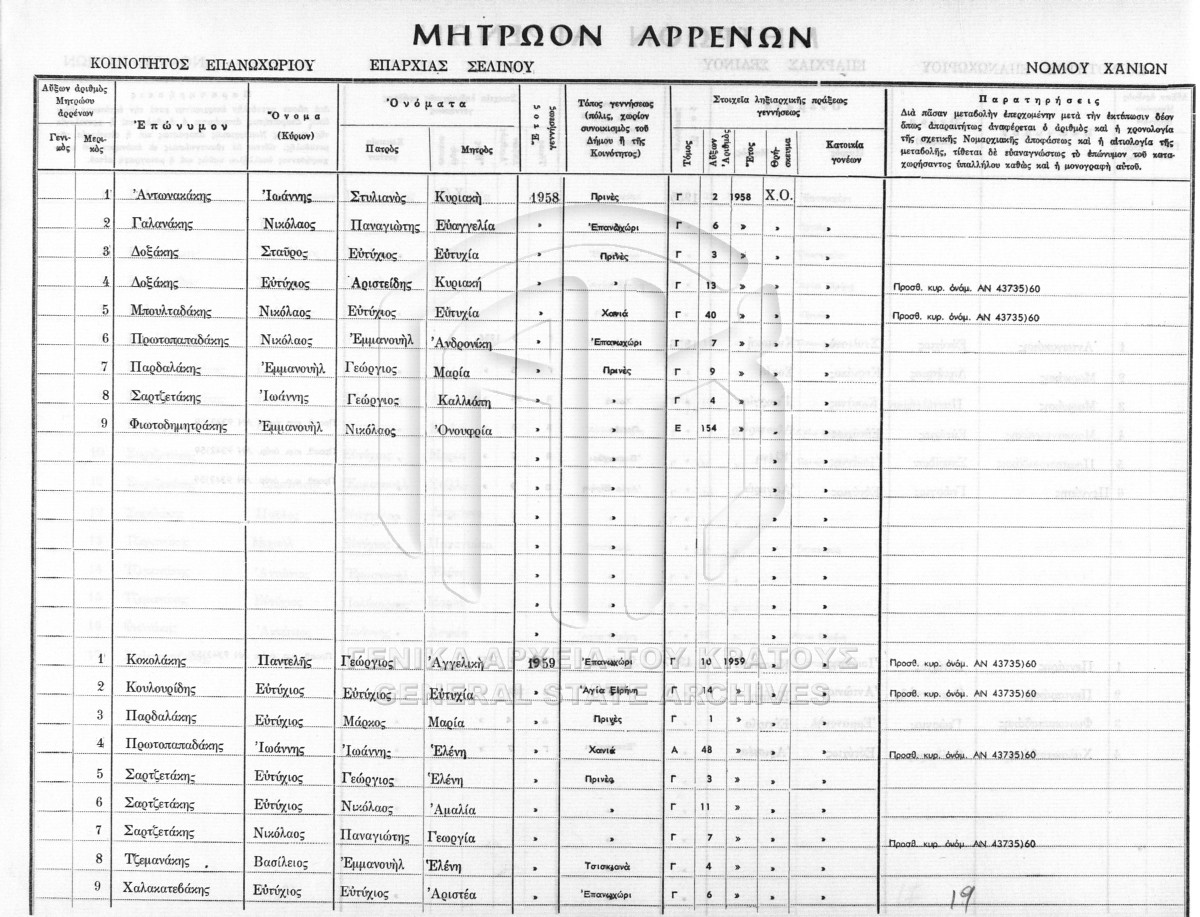 ΜΗΤΡΩΟΝ ΑΡΡΕΝΩΝ
ΚΟΙΝΟΤΗΤΟΣ ΕΠΑΝΩΧΩΡΙΟΥ ΕΠΑΡΧΙΑΣ ΣΕΛΙΝΟΥ ΝΟΜΟΥ ΧΑΝΙΩΝ
Αὔξων ἀριθμὸς Μητρώου ἀρρένων
Γενικὸς Μερικὸς
Ἐπώνυμον
Ὄνομα (Κύριον)
Ὀνόματα
Πατρὸς Μητρὸς
Ἔτος γεννήσεως
Τόπος γεννήσεως (πόλις, χωρίον συνοικισμὸς τοῦ Δήμου ἢ τῆς Κοινότητος)
Στοιχεῖα ληξιαρχικῆς πράξεως γεννήσεως
Τόμος Αὔξων Ἀριθμὸς Ἔτος Θρήσκευμα Κατοικία γονέων
Παρατηρήσεις
Διὰ πᾶσαν μεταβολὴν ἐπερχομένην μετὰ τὴν ἐκτύπωσιν δέον
ὅπως ἀπαραιτήτως ἀναφέρεται ὁ ἀριθμὸς καὶ ἡ χρονολογία
τῆς σχετικῆς Νομαρχιακῆς ἀποφάσεως καὶ ἡ αἰτιολογία τῆς
μεταβολῆς, τίθεται δὲ εὐαναγνώστως τὸ ἐπώνυμον τοῦ κατα-
χωρήσαντος ὑπαλλήλου καθὼς καὶ ἡ μονογραφὴ αὐτοῦ.
1 Ἀντωνακάκης Ἰωάννης Στυλιανὸς Κυριακὴ 1958 Πρινὲς Γ 2 1958 Χ.Ο.
2 Γαλανάκης Νικόλαος Παναγιώτης Εὐαγγελία » Ἐπανωχώρι Γ 6 » » »
3 Δοξάκης Σταῦρος Εὐτύχιος Εὐτυχία » Πρινὲς Γ 3 » » »
4 Δοξάκης Εὐτύχιος Ἀριστείδης Κυριακή » » Γ 13 » » » Προσθ. κυρ. ὀνόμ. ΑΝ 43735)60
5 Μπουλταδάκης Νικόλαος Εὐτύχιος Εὐτυχία » Χανιά Γ 40 » » » Προσθ. κυρ. ὀνόμ. ΑΝ 43735)60
6 Πρωτοπαπαδάκης Νικόλαος Ἐμμανουὴλ Ἀνδρονίκη » Ἐπανωχώρι Γ 7 » » »
7 Παρδαλάκης Ἐμμανουὴλ Γεώργιος Μαρία » Πρινὲς Γ 9 » » »
8 Σαρτζετάκης Ἰωάννης Γεώργιος Καλλιόπη » » Γ 4 » » »
9 Φιωτοδημητράκης Ἐμμανουὴλ Νικόλαος Ὀνουφρία » » Ε 154 » » »
» » » »
» » » »
» » » »
» » » »
» » » »
» » » »
» » » »
1 Κοκολάκης Παντελῆς Γεώργιος Ἀγγελικὴ 1959 Ἐπανωχώρι Γ 10 1959 » » Προσθ. κυρ. ὀνόμ. ΑΝ 43735)60
2 Κουλουρίδης Εὐτύχιος Εὐτύχιος Εὐτυχία » Ἁγία Εἰρήνη Γ 14 » » » Προσθ. κυρ. ὀνόμ. ΑΝ 43735)60
3 Παρδαλάκης Εὐτύχιος Μάρκος Μαρία » Πρινὲς Γ 1 » » »
4 Πρωτοπαπαδάκης Ἰωάννης Ἰωάννης Ἑλένη » Χανιά Α 48 » » » Προσθ. κυρ. ὀνόμ. ΑΝ 43735)60
5 Σαρτζετάκης Εὐτύχιος Γεώργιος Ἑλένη » Πρινὲς Γ 3 » » »
6 Σαρτζετάκης Εὐτύχιος Νικόλαος Ἀμαλία » » Γ 11 » » »
7 Σαρτζετάκης Νικόλαος Παναγιώτης Γεωργία » » Γ 7 » » » Προσθ. κυρ. ὀνόμ. ΑΝ 43735)60
8 Τζεμανάκης Βασίλειος Ἐμμανουὴλ Ἑλένη » Τσισκιανά Γ 4 » » »
9 Χαλακατεβάκης Εὐτύχιος Εὐτύχιος Ἀριστέα » Ἐπανωχώρι Γ 6 » » »
19
ΓΕΝΙΚΑ ΑΡΧΕΙΑ ΤΟΥ ΚΡΑΤΟΥΣ
GENERAL STATE ARCHIVES